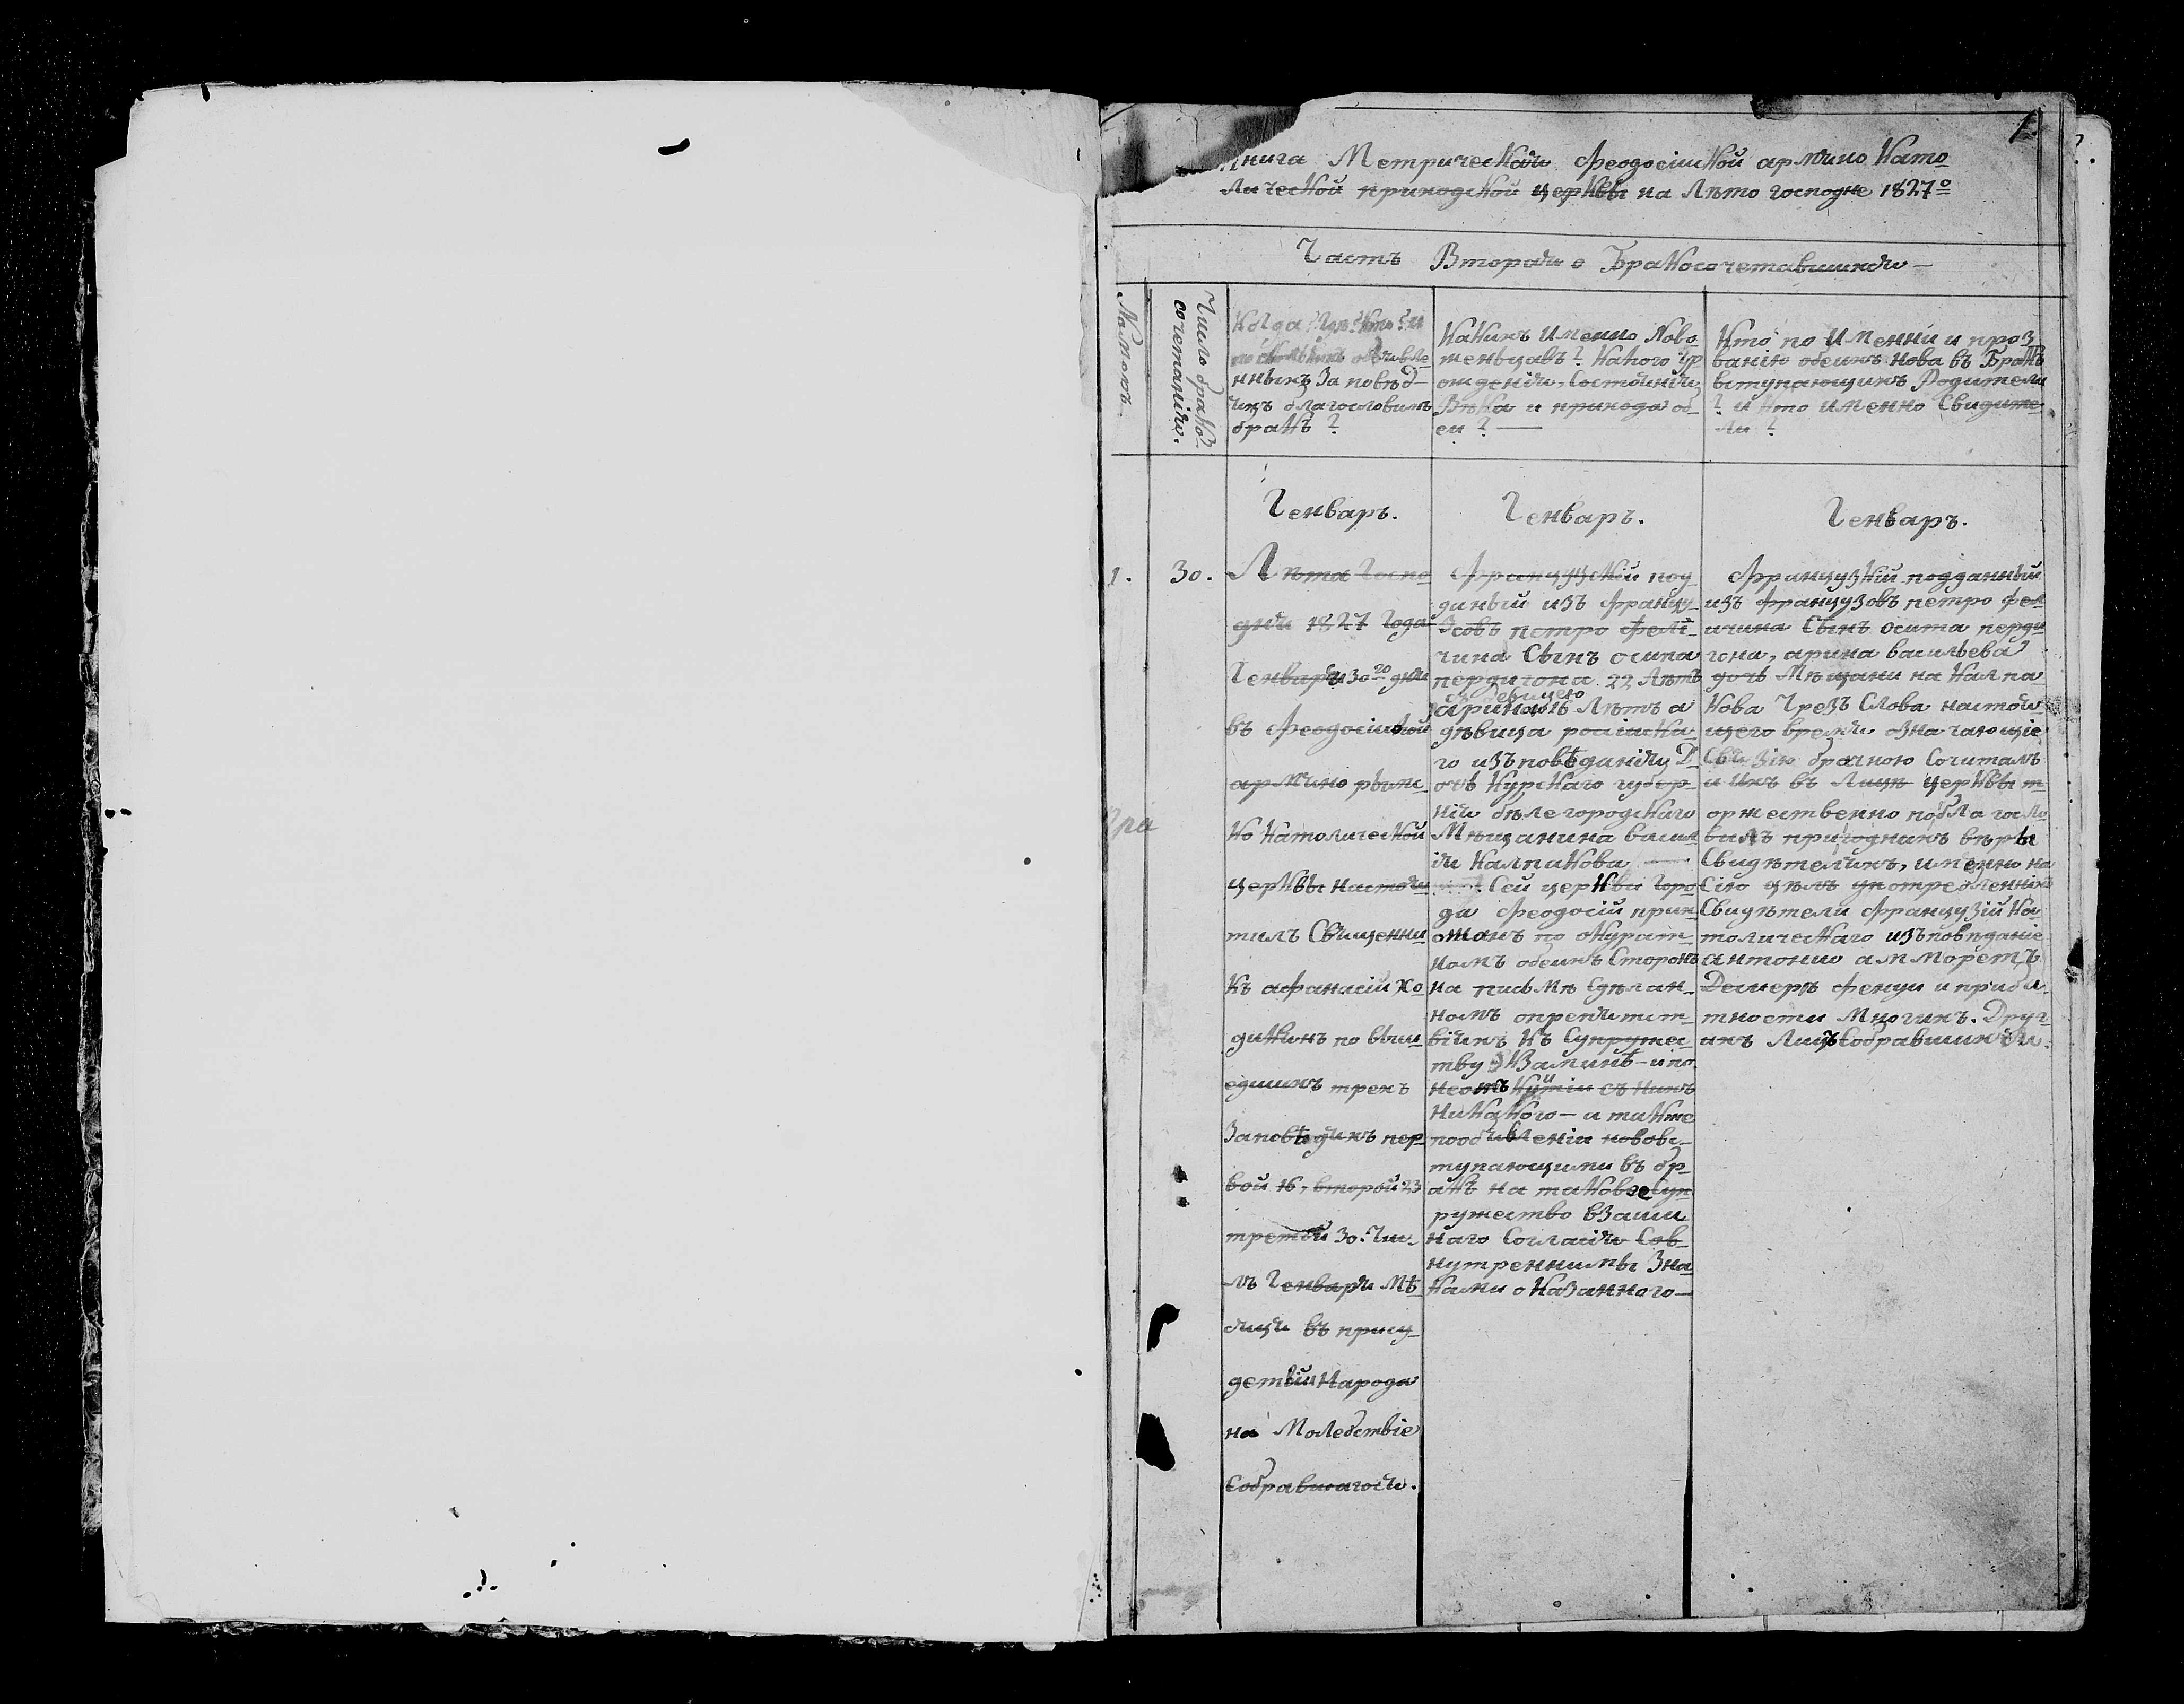 1
Книга Метрическая феодосійской армяно като
лической приходской церквы на Лѣто господне 1827º
Часть Вторая о Бракосочетавшихся
Nамокъ.
Число брако
сочетанія.
Когда
объявле
нныхъ Заповѣд-
яхъ благословилъ
бракъ?
Какихъ Именно Ново
женъцавъ? Какого Ур
ождения, Состоянія,
Вѣка и прихода об-
еи?
Кто по Имении и проз
ванію обеихъ нова въ Бракъ
вступающихъ Родители
? и кто именно Свидите-
ли?
Генваръ.
Генваръ.
Генваръ.
1.
30.
Лѣта Госпо
дня 1827 Года
Генваря 30го дня
въ феодосійской
армяно рымс-
ко католической
церквы настоя
тилъ Священни
къ афанасій хо
дикянъ по выш
едшихъ трехъ
Заповѣдяхъ пер-
вой 16, второй 23
третей 30. Чис-
лъ Генваря Мѣ
сяця въ прису-
детвии Народа
на Молебствіе
Собравшагося.
Французскій под-
даный изъ францу-
зсовъ петро фелі-
чина Сынъ осипа
пердигона 22 Лѣтъ
съ девицею
арина 16 Лѣтъ а
дѣвица россійска-
го изъповѣданія Д-
очъ Курскаго губер-
ніи бѣлегородскаго
Мѣщанина васил
ія Калпакова
Сей церкви Горо
да Феодосій прих
ожанъ по окурат-
номъ обеихъ Сторонъ
на письмѣ Сдѣлан-
номъ опрепятст-
віяхъ къ Супружес-
тву
никакого — и также
пообявленіи нововс-
тупающими въ бр-
акъ на таковое Суп
ружество взаим
наго Согласія Сов
нутреннимы Зна
ками оказанного —
Французкій подданный
изъ французовъ петро фел
ичина Сынъ осипа перди
гона, арина васильева
дочъ Мѣщани на Калпа
кова Чрезъ Слова настоя
щего время означающіе
Связію брачною Сочиталъ
и ихъ въ Лицѣ церквы т
оржественно побла госло
вилъ пригоднихъ вѣры
Свидѣтеляхъ, именно на
Сію цѣлъ употребленнія
Свидѣтели французій ка
толическаго изъповѣданіе
антонио ам моретъ
Демеръ фенци и прибы-
тности Многихъ. Друг-
ихъ Лицъ Собравшихся.